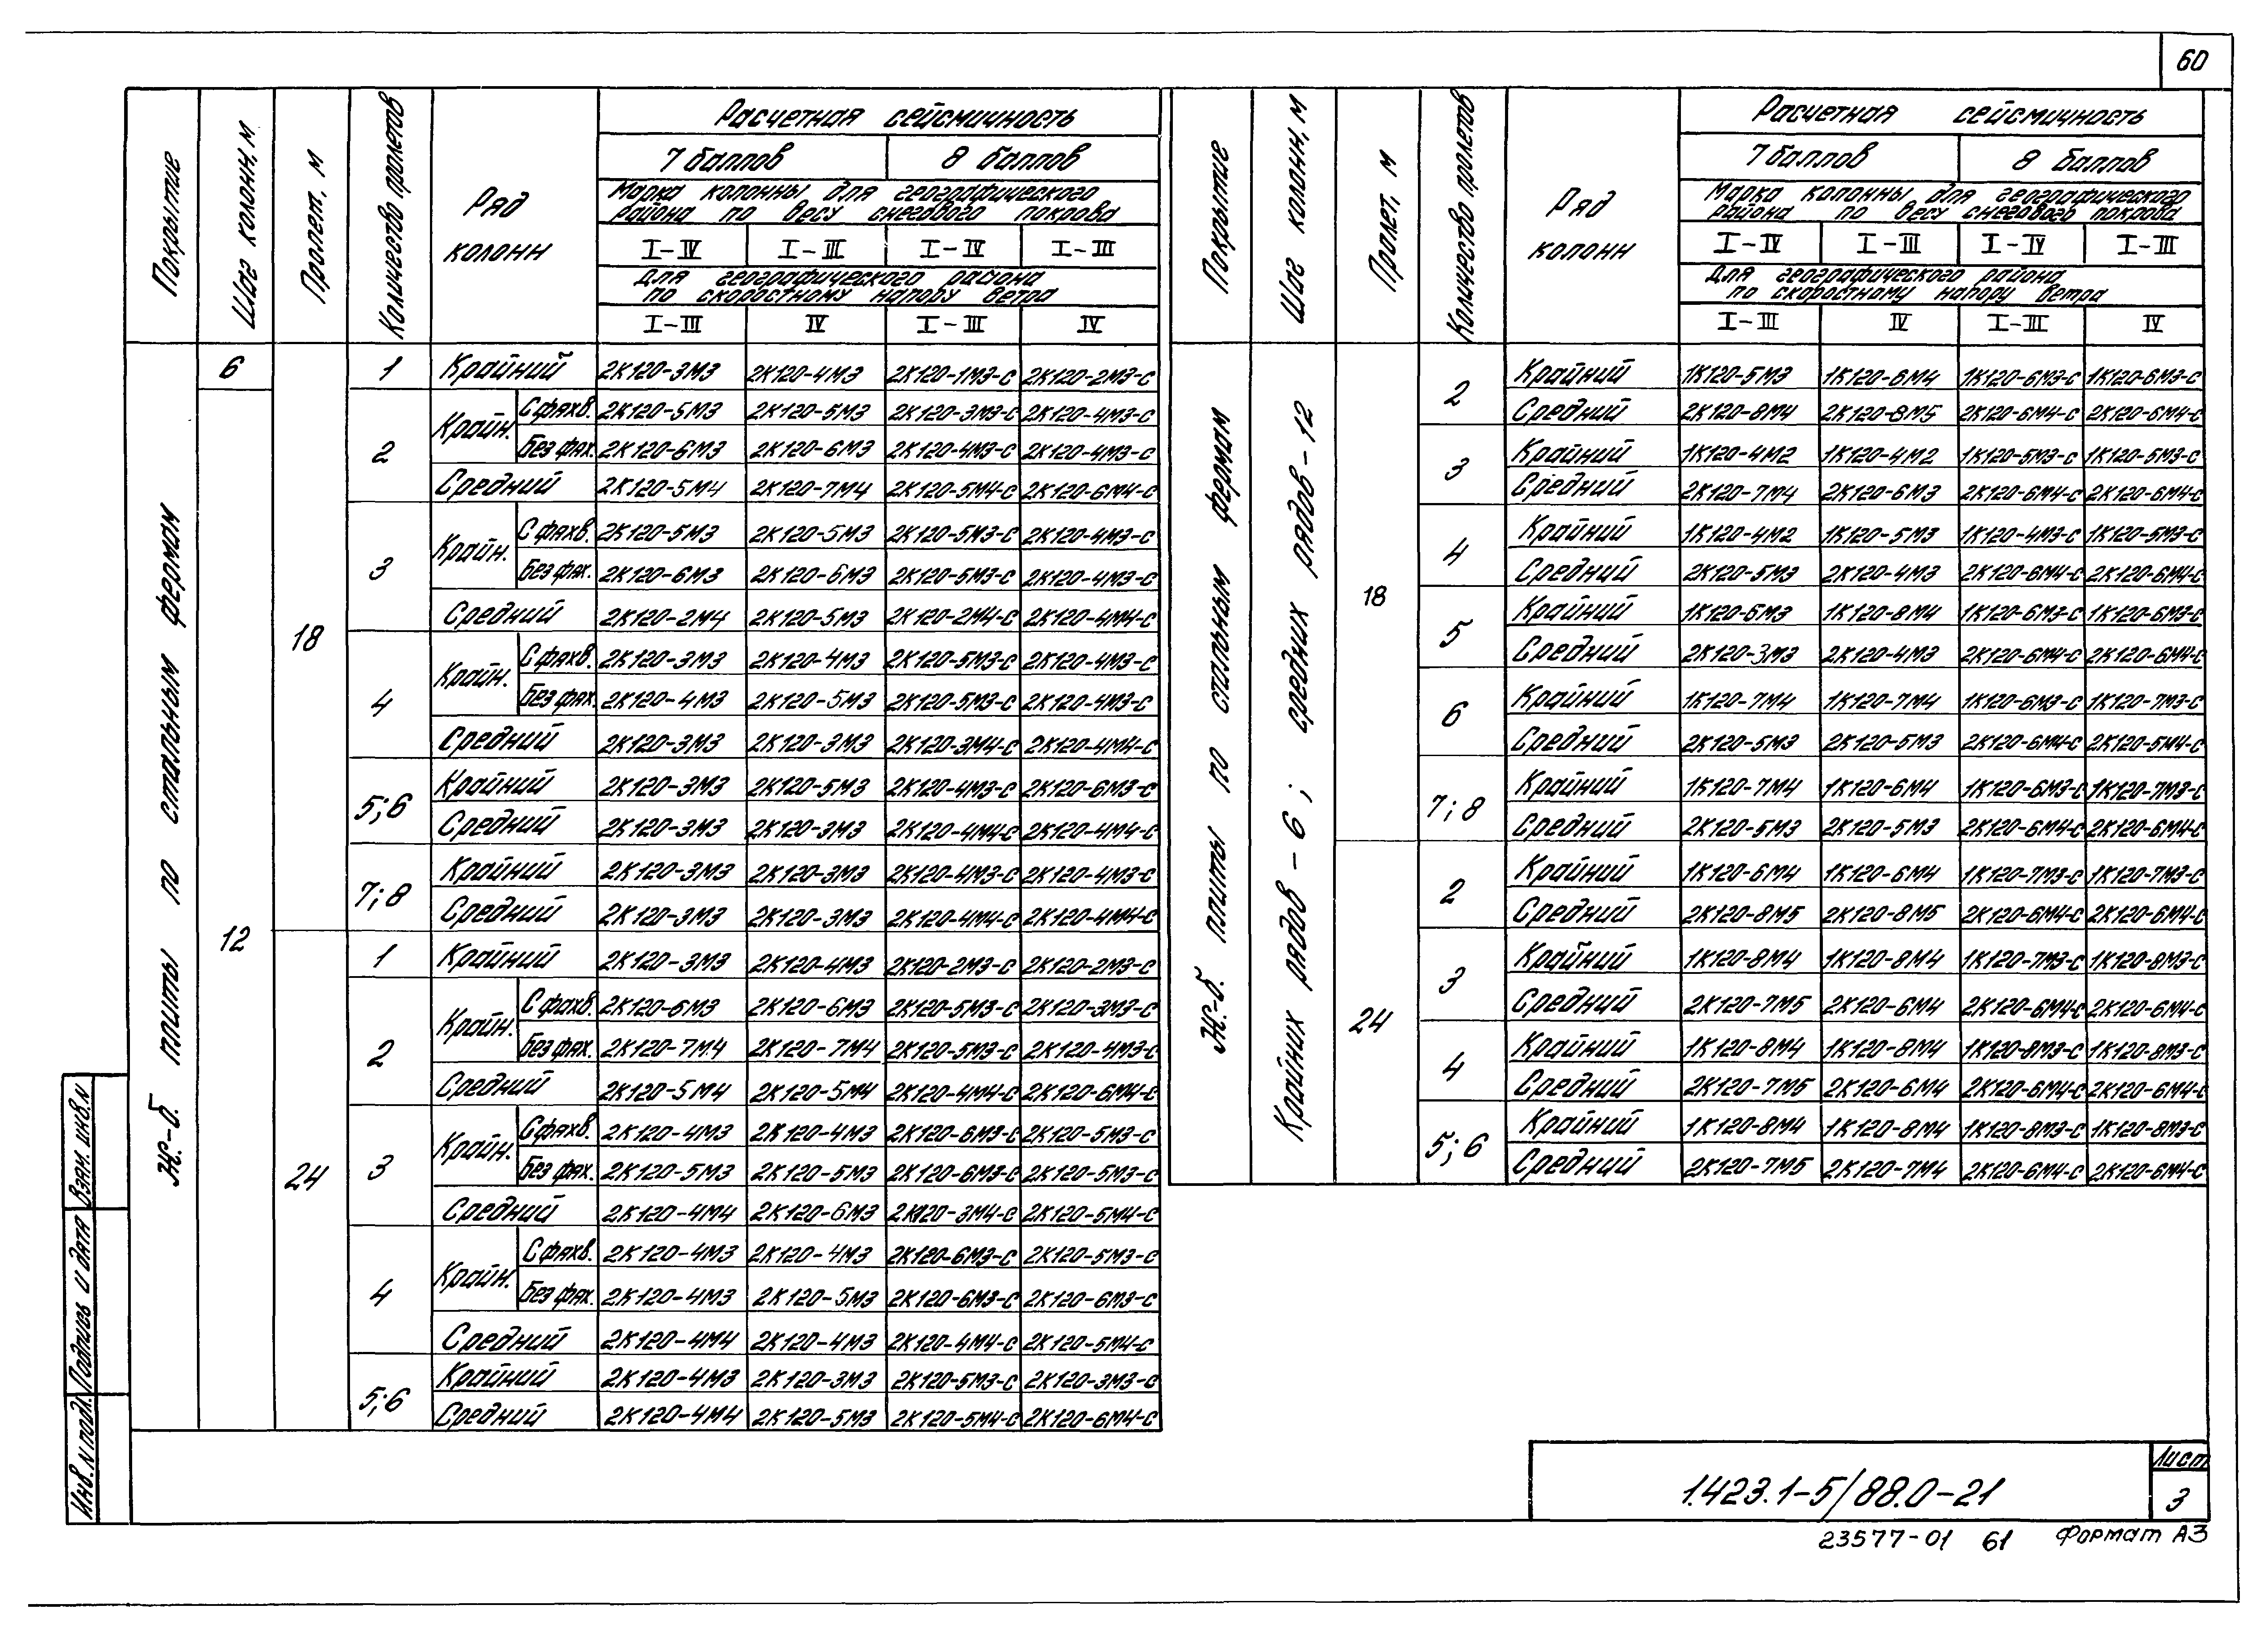 60
Покрытие
Шаг колонн, м
Пролет, м
Количество пролетов
Ряд колонн
Расчетная сейсмичность
7 баллов 8 баллов
Марка колонны для географического
района по весу снегового покрова
I-IV I-III I-IV I-III
Для географического района
по скоростному напору ветра
I-III IV I-III IV
Ж.-б. плиты по стальным фермам
6
12
18
1 Крайний 2К120-3М3 2К120-4М3 2К120-1М3-С 2К120-2М3-С
2 Крайн. С фахв. 2К120-5М3 2К120-5М3 2К120-3М3-С 2К120-4М3-С
Без фах. 2К120-6М3 2К120-6М3 2К120-4М3-С 2К120-4М3-С
Средний 2К120-5М4 2К120-7М4 2К120-5М4-С 2К120-6М4-С
3 Крайн. С фахв. 2К120-5М3 2К120-5М3 2К120-5М3-С 2К120-4М3-С
Без фах. 2К120-6М3 2К120-6М3 2К120-5М3-С 2К120-4М3-С
Средний 2К120-2М4 2К120-5М3 2К120-2М4-С 2К120-4М4-С
4 Крайн. С фахв. 2К120-3М3 2К120-4М3 2К120-5М3-С 2К120-4М3-С
Без фах. 2К120-4М3 2К120-5М3 2К120-5М3-С 2К120-4М3-С
Средний 2К120-3М3 2К120-3М3 2К120-3М4-С 2К120-4М4-С
5;6 Крайний 2К120-3М3 2К120-5М3 2К120-4М3-С 2К120-6М3-С
Средний 2К120-3М3 2К120-3М3 2К120-4М4-С 2К120-4М4-С
7;8 Крайний 2К120-3М3 2К120-3М3 2К120-4М3-С 2К120-4М3-С
Средний 2К120-3М3 2К120-3М3 2К120-4М4-С 2К120-4М4-С
24
1 Крайний 2К120-3М3 2К120-4М3 2К120-2М3-С 2К120-2М3-С
2 Крайн. С фахв. 2К120-6М3 2К120-6М3 2К120-5М3-С 2К120-3М3-С
Без фах. 2К120-7М4 2К120-7М4 2К120-5М3-С 2К120-4М3-С
Средний 2К120-5М4 2К120-5М4 2К120-4М4-С 2К120-6М4-С
3 Крайн. С фахв. 2К120-4М3 2К120-4М3 2К120-6М3-С 2К120-5М3-С
Без фах. 2К120-5М3 2К120-5М3 2К120-6М3-С 2К120-5М3-С
Средний 2К120-4М4 2К120-6М3 2К120-3М4-С 2К120-5М4-С
4 Крайн. С фахв. 2К120-4М3 2К120-4М3 2К120-6М3-С 2К120-5М3-С
Без фах. 2К120-4М3 2К120-5М3 2К120-6М3-С 2К120-6М3-С
Средний 2К120-4М4 2К120-4М3 2К120-4М4-С 2К120-5М4-С
5;6 Крайний 2К120-4М3 2К120-3М3 2К120-5М3-С 2К120-3М3-С
Средний 2К120-4М4 2К120-5М3 2К120-5М4-С 2К120-6М4-С
Покрытие
Шаг колонн, м
Пролет, м
Количество пролетов
Ряд колонн
Расчетная сейсмичность
7 баллов 8 баллов
Марка колонны для географического
района по весу снегового покрова
I-IV I-III I-IV I-III
Для географического района
по скоростному напору ветра
I-III IV I-III IV
Ж.-б. плиты по стальным фермам
Крайних рядов - 6; средних рядов - 12
18
2 Крайний 1К120-5М3 1К120-6М4 1К120-6М3-С 1К120-6М3-С
Средний 2К120-8М4 2К120-8М5 2К120-6М4-С 2К120-6М4-С
3 Крайний 1К120-4М2 1К120-4М2 1К120-5М3-С 1К120-5М3-С
Средний 2К120-7М4 2К120-6М3 2К120-6М4-С 2К120-6М4-С
4 Крайний 1К120-4М2 1К120-5М3 1К120-4М3-С 1К120-5М3-С
Средний 2К120-5М3 2К120-4М3 2К120-6М4-С 2К120-6М4-С
5 Крайний 1К120-6М3 1К120-8М4 1К120-6М3-С 1К120-6М3-С
Средний 2К120-3М3 2К120-4М3 2К120-6М4-С 2К120-6М4-С
6 Крайний 1К120-7М4 1К120-7М4 1К120-6М3-С 1К120-7М3-С
Средний 2К120-5М3 2К120-5М3 2К120-6М4-С 2К120-5М4-С
7;8 Крайний 1К120-7М4 1К120-6М4 1К120-6М3-С 1К120-7М3-С
Средний 2К120-5М3 2К120-5М3 2К120-6М4-С 2К120-6М4-С
24
2 Крайний 1К120-6М4 1К120-6М4 1К120-7М3-С 1К120-7М3-С
Средний 2К120-8М5 2К120-8М5 2К120-6М4-С 2К120-6М4-С
3 Крайний 1К120-8М4 1К120-8М4 1К120-7М3-С 1К120-8М3-С
Средний 2К120-7М5 2К120-6М4 2К120-6М4-С 2К120-6М4-С
4 Крайний 1К120-8М4 1К120-8М4 1К120-8М3-С 1К120-8М3-С
Средний 2К120-7М5 2К120-6М4 2К120-6М4-С 2К120-6М4-С
5;6 Крайний 1К120-8М4 1К120-8М4 1К120-8М3-С 1К120-8М3-С
Средний 2К120-7М5 2К120-7М4 2К120-6М4-С 2К120-6М4-С
Взам. инв. N
Подпись и дата
Инв. N подл.
1.423.1-5/88.0-21
Лист
3
23577-01 61 Формат А3